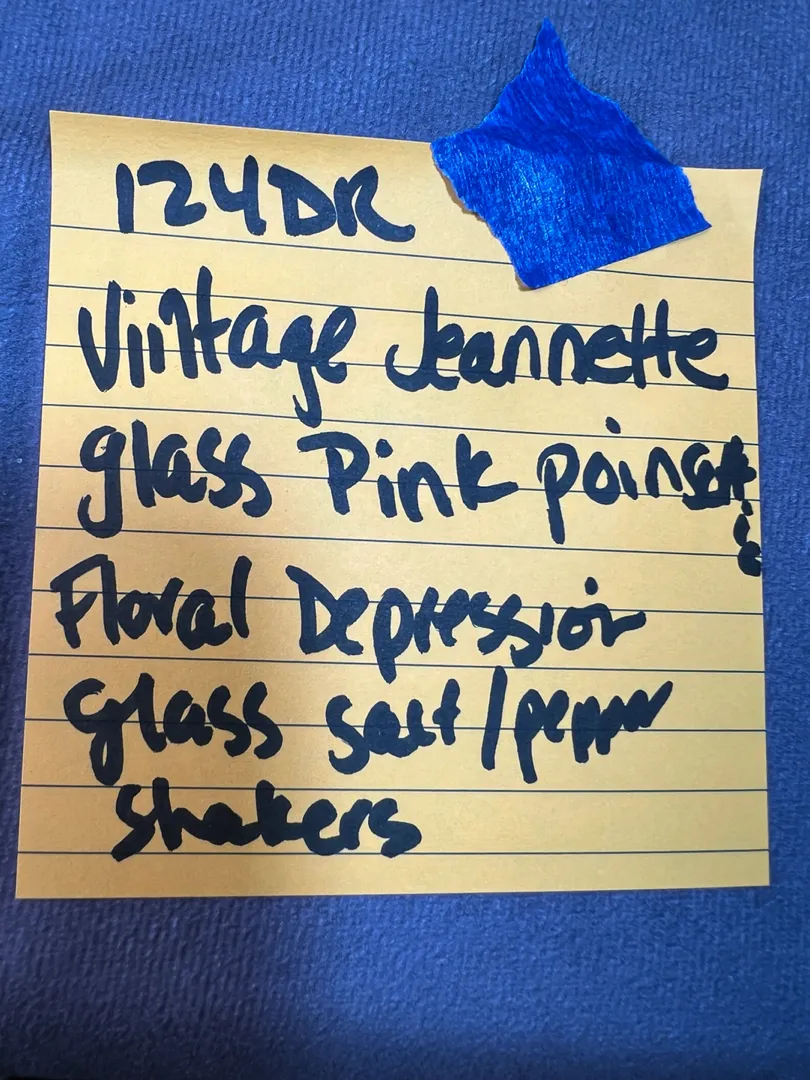 124DR
Viintage Jeannette
glass Pink poinsettia
Floral Depression
glass salt/pepper
shakers